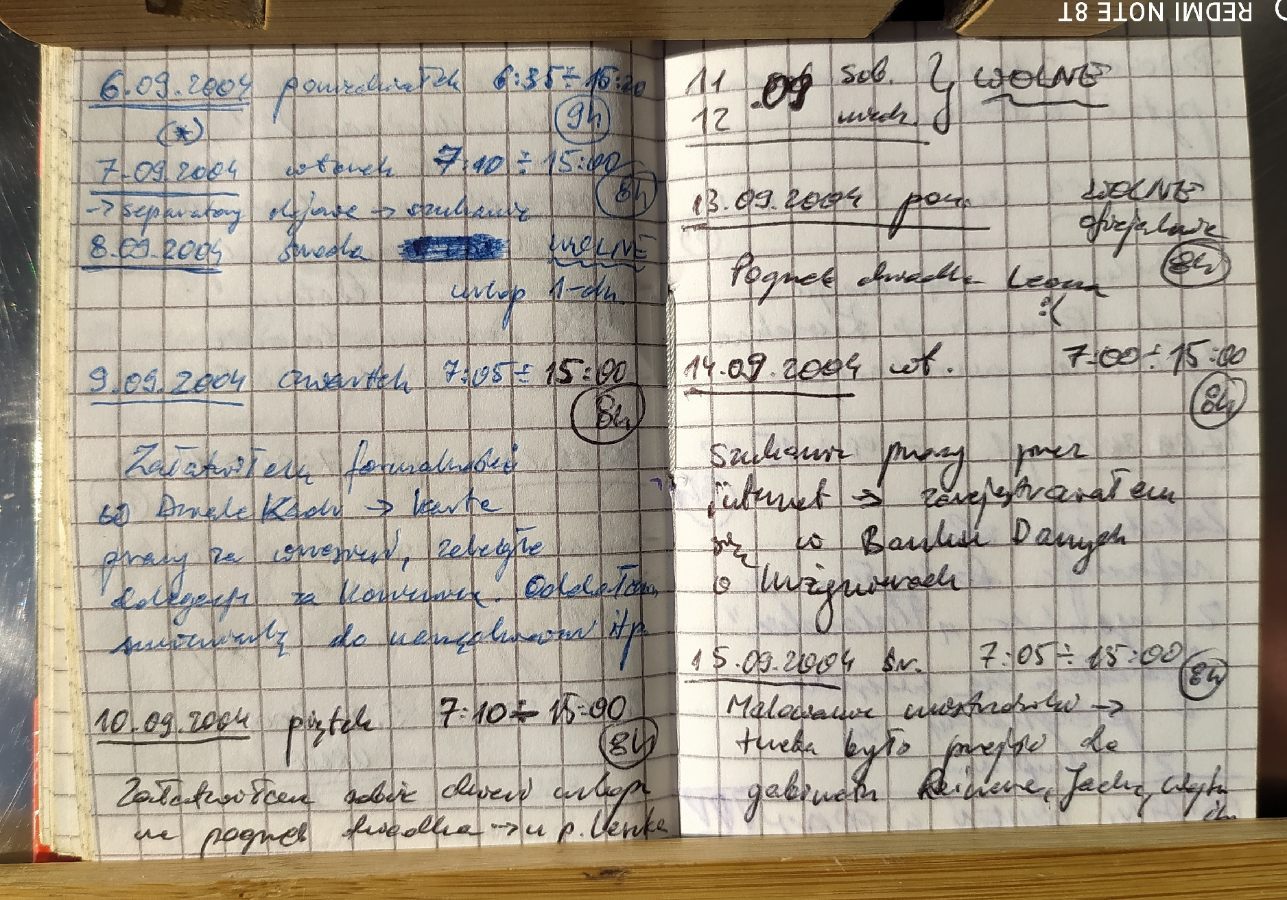 6.09.2004 poniedziałek 6:35÷15:20
(*) 9h
7.09.2004 wtorek 7:10 ÷ 15:00
8h
→ separatory olejowe → szukanie
8.09.2004 środa WOLNE
urlop 1-dn
9.09.2004 czwartek 7:05÷15:00
8h
Załatwiłem formalności
w Dziale Kadr → karta
pracy za wrzesień, zaległe
delegacje za. Oddałem
do itp
10.09.2004 piątek 7:10÷15:00
8h
Załatwiłem sobie dzień urlopu
na pogrzeb dziadka → u p.
11 .09 sob. } WOLNE
12 niedz.
13.09.2004 pon. WOLNE
oficjalnie
8h
Pogrzeb dziadka Leona
:(
14.09.2004 wt. 7:00÷15:00
8h
Szukanie pracy przez
internet → zarejestrowałem
się w Banku Danych
o Inżynierach
15.09.2004 śr. 7:05÷15:00
8h
Malowanie →
trzeba było przejść do
gabinetu
REDMI NOTE 8T